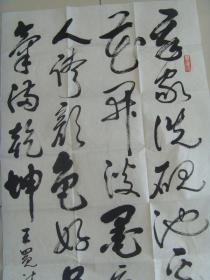 吾家洗砚池
花开淡墨
人夸颜色好
气满乾坤 王冕